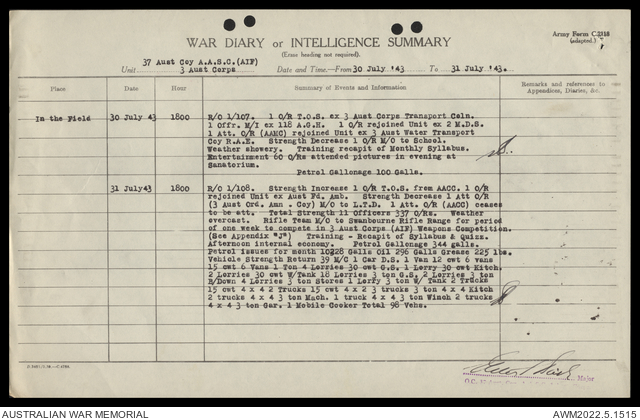 Army Form C.2118
(adapted.)
WAR DIARY or INTELLIGENCE SUMMARY
(Erase heading not required).
37 Aust Coy A.A.S.C.(AIF)
Unit 3 Aust Corps Date and Time.—From 30 July '43 To 31 July '43.
Place Date Hour Summary of Events and Information Remarks and references to Appendices, Diaries, &c.
In the Field 30 July 43 1800 R/O 1/107. 1 O/R T.O.S. ex 3 Aust Corps Transport Coln.
1 offr. M/I ex 118 A.G.H. 1 O/R rejoined Unit ex 2 M.D.S.
1 Att. O/R (AAMC) rejoined Unit ex 3 Aust Water Transport
Coy R.A.E. Strength Decrease 1 O/R M/O to School.
Weather showery. Training recapit of Monthly Syllabus.
Entertainment 60 O/Rs attended pictures in evening at
Sanatorium.
Petrol Gallonage 100 Galls.
31 July 43 1800 R/O 1/108. Strength Increase 1 O/R T.O.S. from AACC. 1 O/R
rejoined Unit ex Aust Fd. Amb. Strength Decrease 1 O/R
(3 Aust Ord. Amn. Coy) M/O to L.T.D. 1 Att. O/R (AACC) ceases
to be att. Total Strength 11 Officers 337 O/Rs. Weather
overcast. Rifle Team M/O to Swanbourne Rifle Range for period
of one week to compete in 3 Aust Corps (AIF) Weapons Competition.
(See Appendix "J") Training - Recapit of Syllabus & Quizz.
Afternoon internal economy. Petrol Gallonage 344 galls.
Petrol issues for month 10228 Galls Oil 296 Galls Grease 225 lbs.
Vehicle Strength Return 39 M/C 1 Car D.S. 1 Van 12 cwt 6 vans
15 cwt 6 Vans 1 Ton 4 Lorries 30 cwt G.S. 1 Lorry 30 cwt Kitch.
2 Lorries 30 cwt W/Tank 18 Lorries 3 ton G.S. 2 Lorries 3 ton
B/Down 4 Lorries 3 ton Stores 1 Lorry 3 ton W/ Tank 2 Trucks
15 cwt 4 x 4 2 Trucks 15 cwt 4 x 2 3 trucks 3 ton 4 x 4 Kitch
2 trucks 4 x 4 3 ton Mach. 1 truck 4 x 4 3 ton Winch 2 trucks
4 x 4 3 ton Gar. 1 Mobile Cooker Total 98 Vehs.
Major
O.C. 37
AUSTRALIAN WAR MEMORIAL AWM2022.5.1515